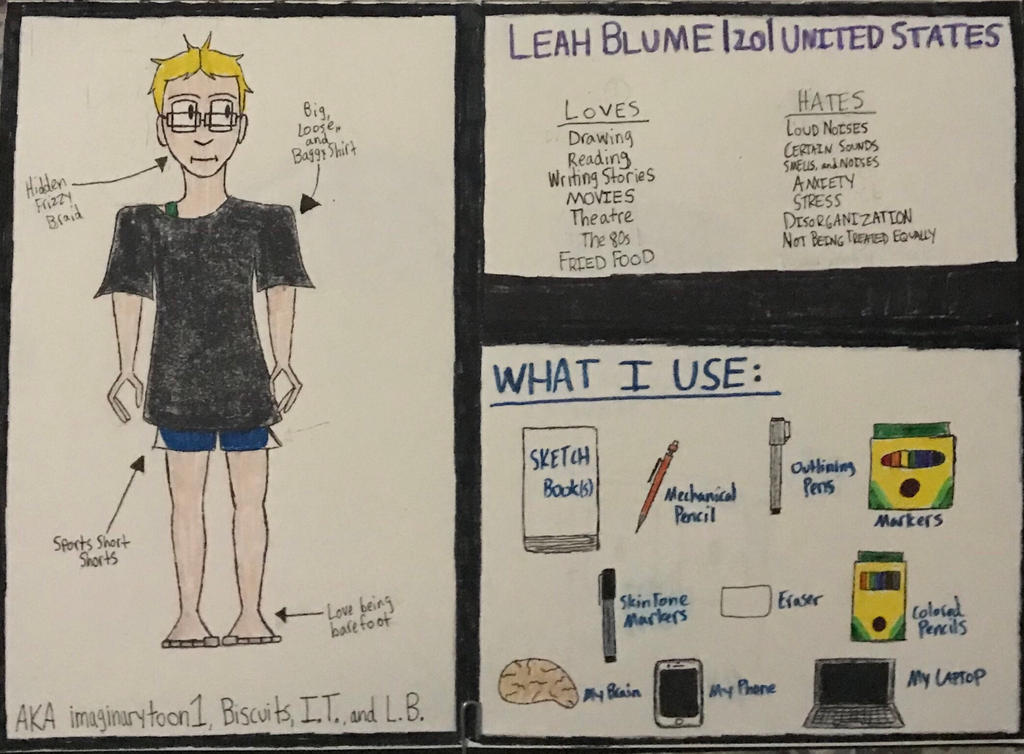 Hidden
Frizzy
Braid
Big,
Loose,
and
Baggy Shirt
Sports Short
Shorts
Love being
barefoot
AKA imaginarytoon1, Biscuits, I.T., and L.B.
LEAH BLUME |20| UNITED STATES
LOVES
Drawing
Reading
Writing Stories
MOVIES
Theatre
The 80s
FRIED FOOD
HATES
LOUD NOISES
CERTAIN SOUNDS
SMELLS, and NOISES
ANXIETY
STRESS
DISORGANIZATION
NOT BEING TREATED EQUALLY
WHAT I USE:
SKETCH
Book(s)
Mechanical
Pencil
Outlining
Pens
Markers
Skin Tone
Markers
Eraser
Colored
Pencils
My Brain
My Phone
My LAPTOP